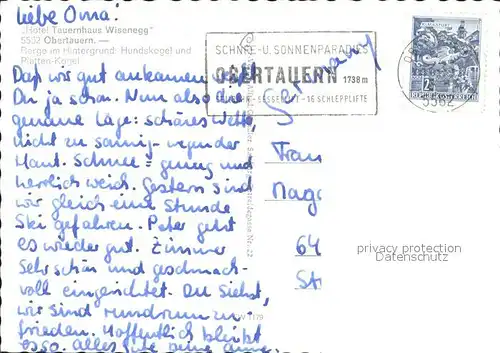 Liebe Oma!
„Hotel Tauernhaus Wisenegg"
5562 Obertauern. —
Berge im Hintergrund: Hundskogel und
Platten-Kogel
Daß wir gut ankamen weißt
Du ja schon. Nun also die
genaue Lage: schönes Wetter,
nicht zu sonnig - wegen der
Haut. Schnee genug und
herrlich weich. Gestern sind
wir gleich eine Stunde
Ski gefahren. Peter geht
es wieder gut. Zimmer
sehr schön und geschmack-
voll eingerichtet. Du siehst,
wir sind rundrum zu-
frieden. Hoffentlich bleibt
es so. Alles Gute
SCHNEE-U. SONNENPARADIES
OBERTAUERN 1738 m
SESSELLIFT - 16 SCHLEPPLIFTE
5562
REPUBLIK ÖSTERREICH
Germany
Frau
Nr. 22
64
privacy protection
Datenschutz